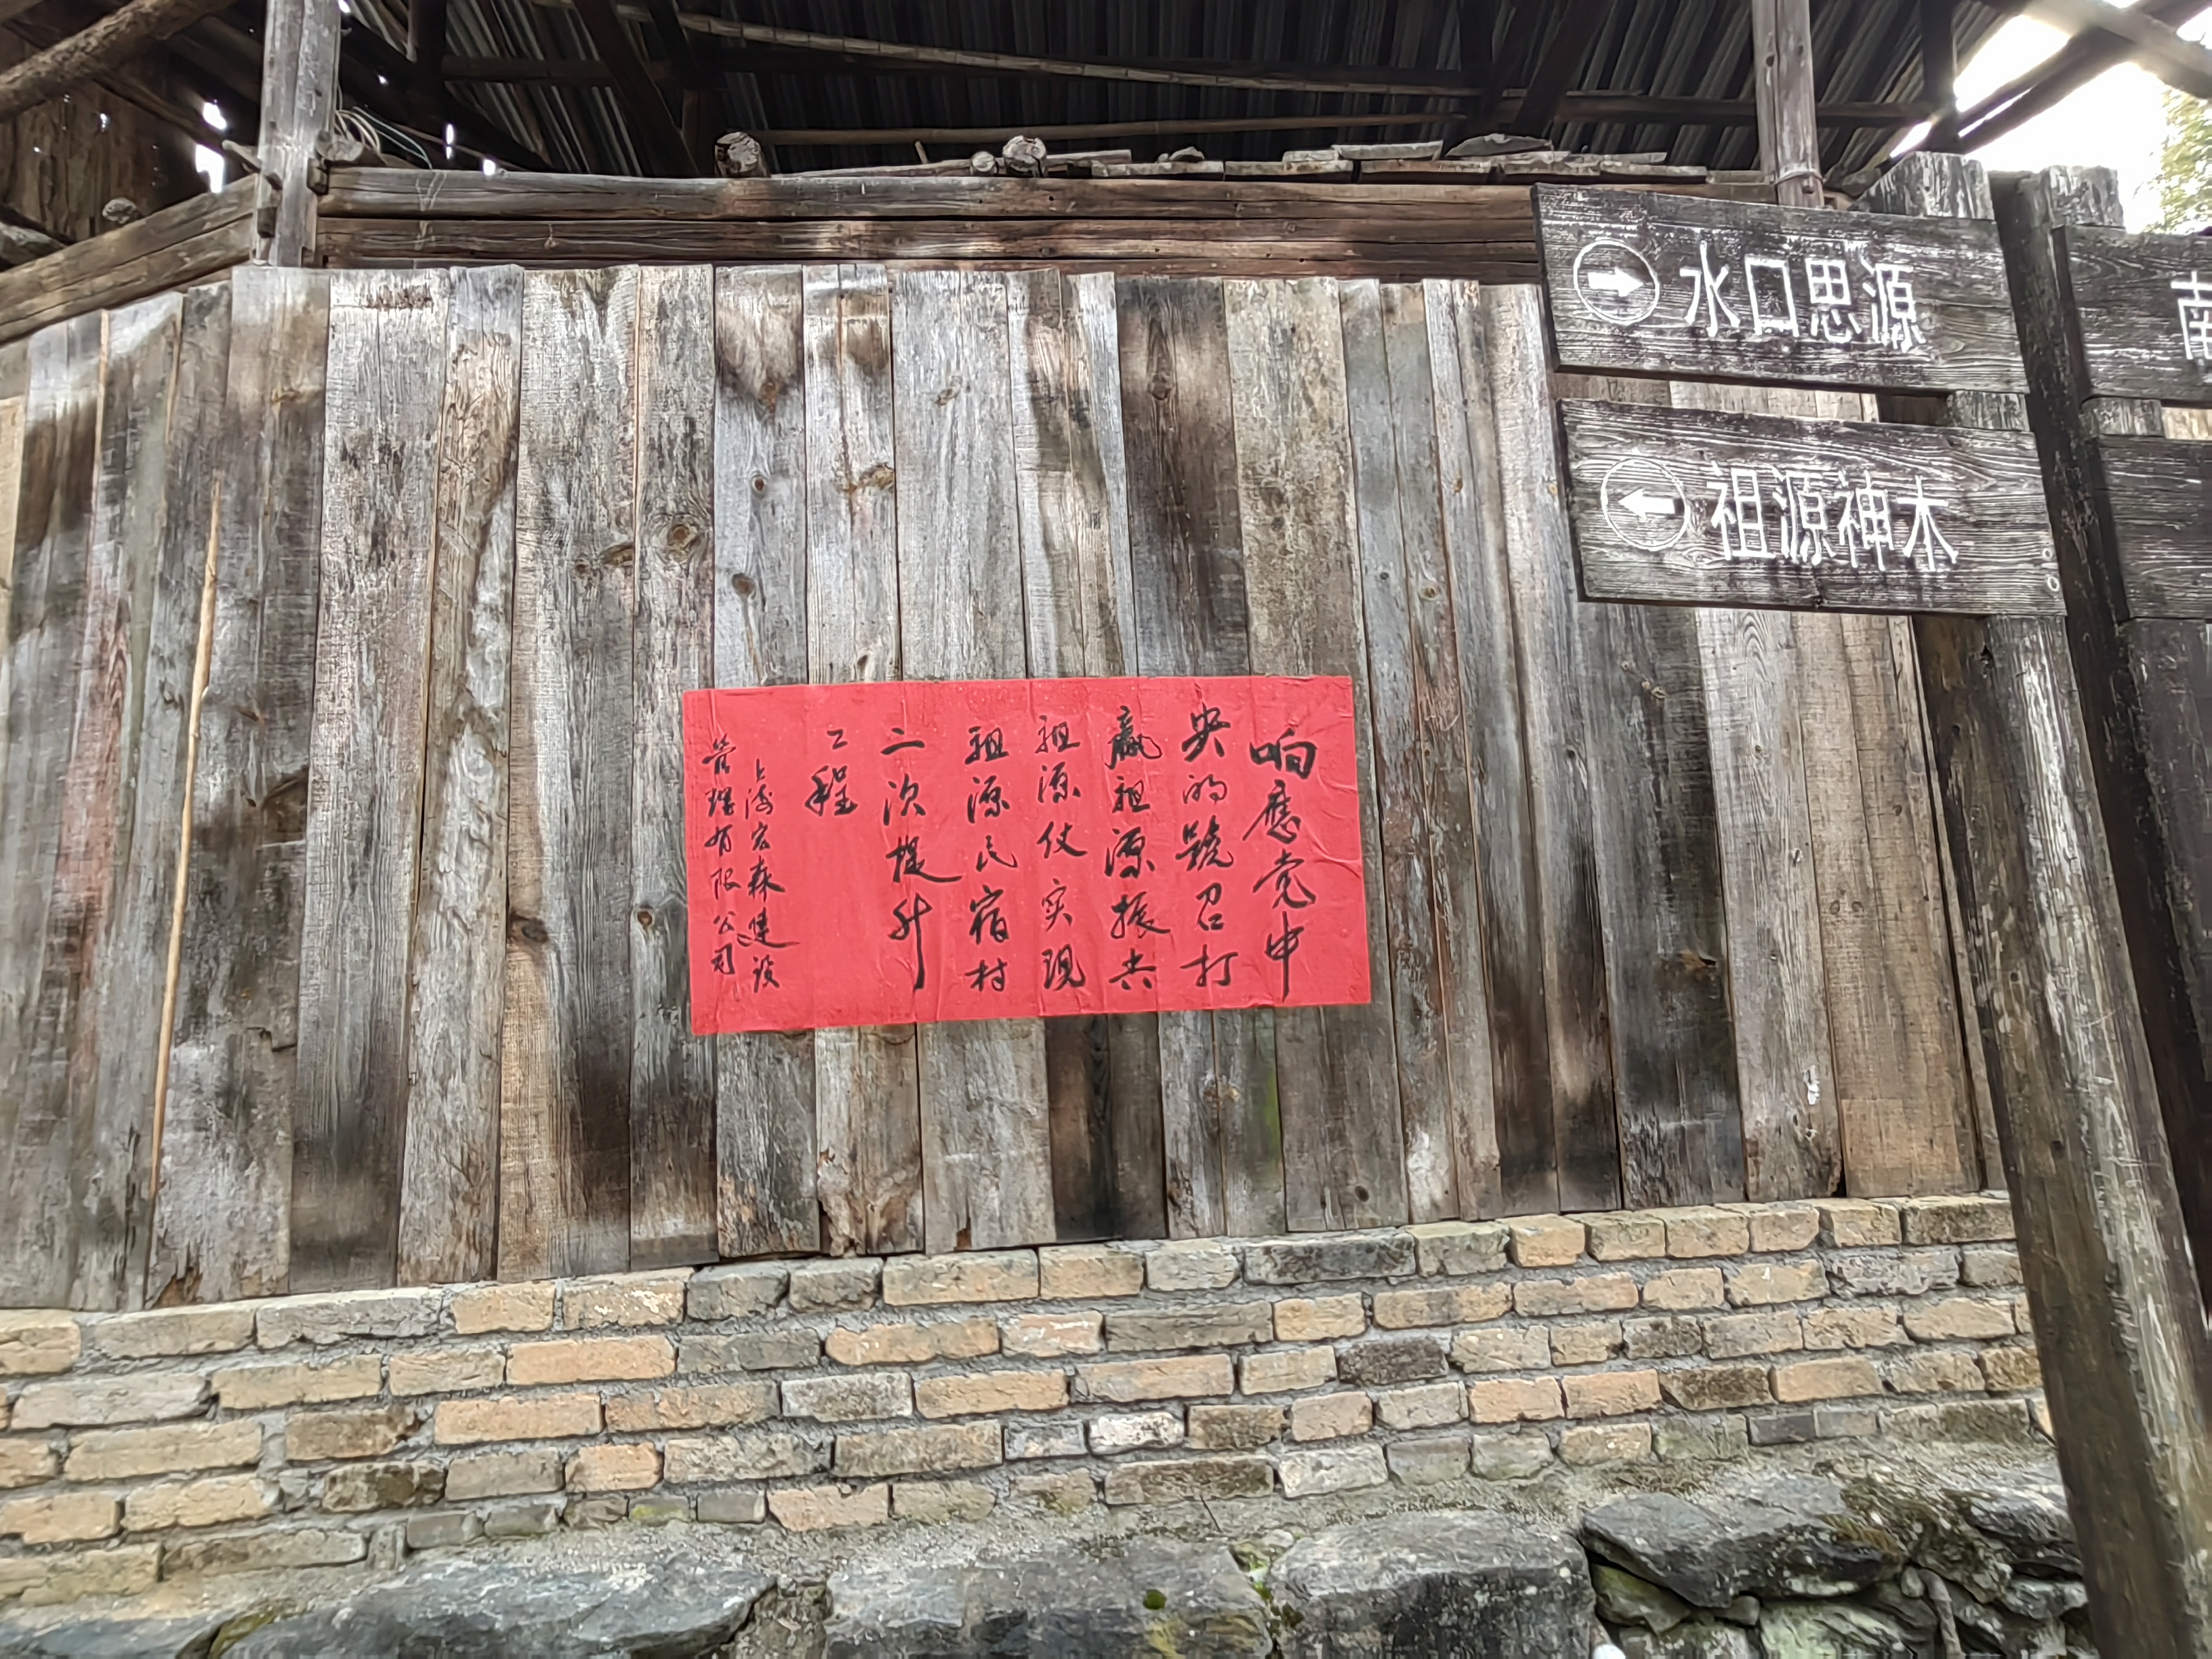 响應党中
央的號召打
赢祖源振兴
祖源仗实现
祖源民宿村
二次提升
工程
上海宏森建设
管理有限公司
水口思源
祖源神木